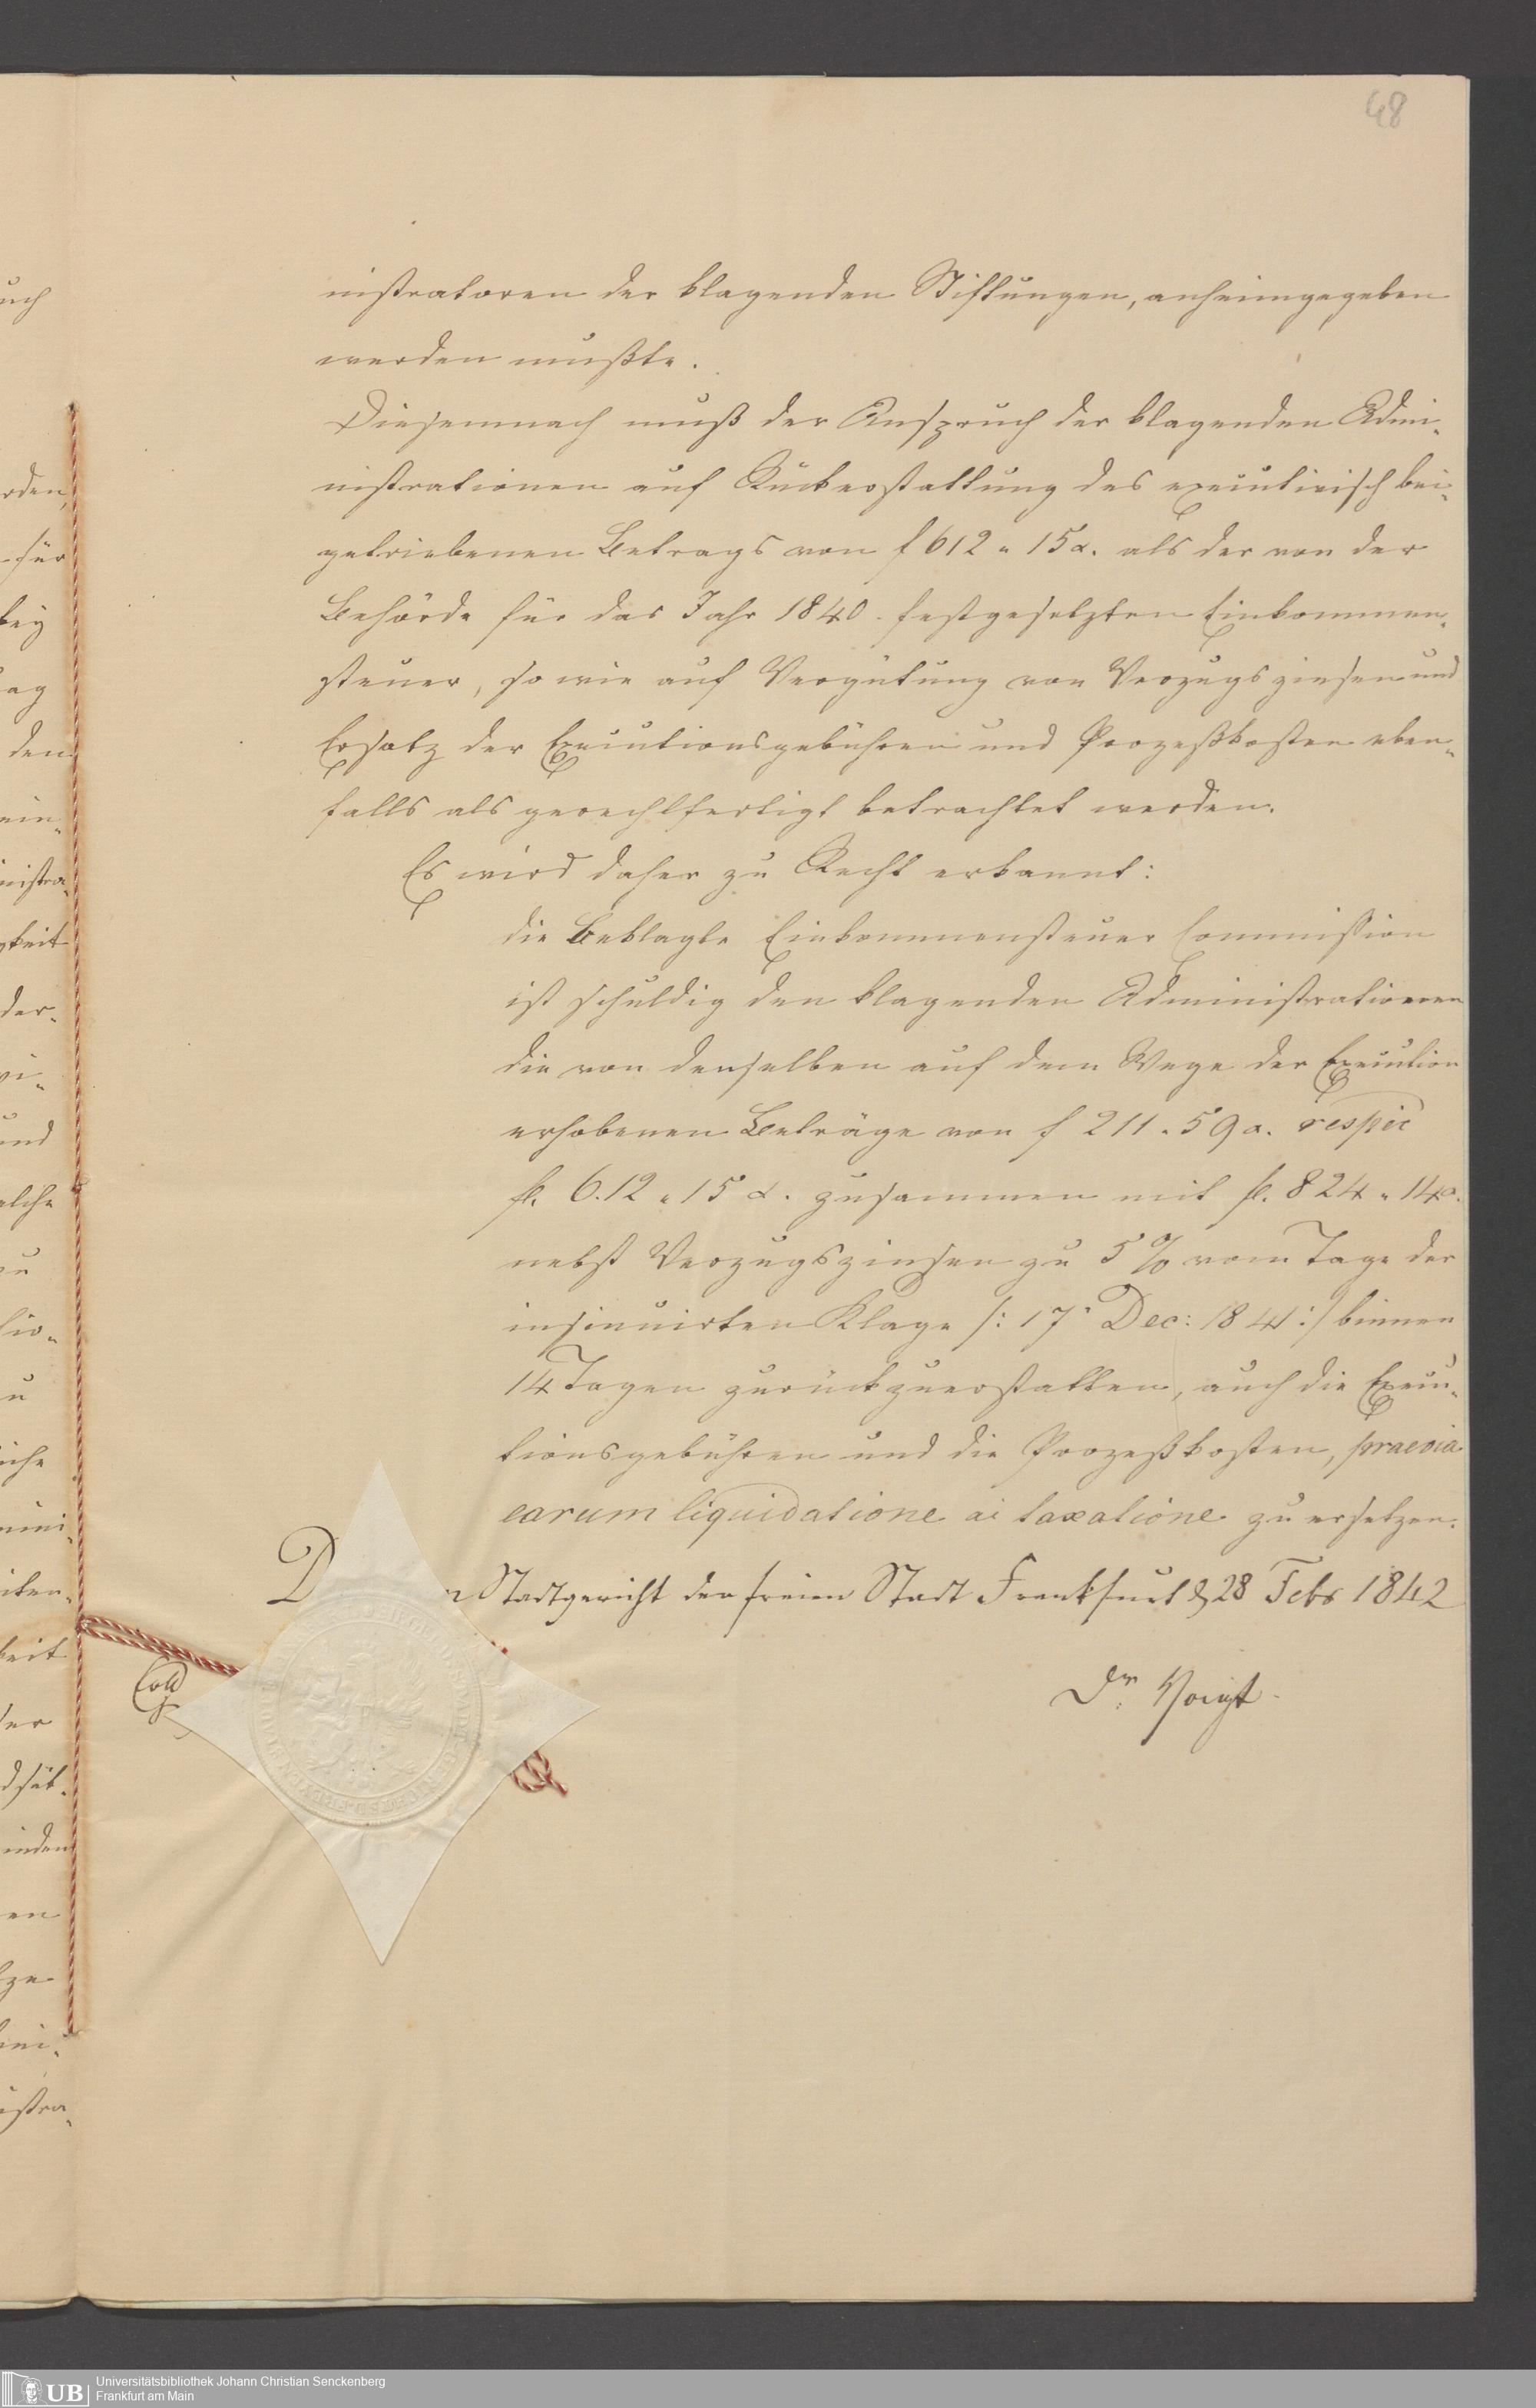 48
uch
rden,
für
bey
ag
den
ein-
nistra-
gkeit
der-
und
elche
zu
u
iche
mini-
iten-
keit
der
inden
en
istra-
nistratoren der klagenden Stiftungen, anheimgegeben
werden mußte.
Diesemnach muß der Anspruch der klagenden Admi-
nistrationen auf Rückerstattung des executivisch bei-
getriebenen Betrags von f 612 " 15 x. als der von der
Behörde für das Jahr 1840. festgesetzten Einkommen-
steuer, so wie auf Vergütung von Verzugszinsen und
Ersatz der Executionsgebühren und Prozeßkosten eben-
falls als gerechtfertigt betrachtet werden.
Es wird daher zu Recht erkannt:
die Beklagte Einkommensteuer Commission
ist schuldig den klagenden Administrationen
die von denselben auf dem Wege der Execution
erhobenen Beträge von f 211. 59 x. respve
fl. 612 " 15 x. zusammen mit fl. 824 " 14 x.
nebst Verzugszinsen zu 5 % vom Tage der
insinuirten Klage /: 17r Dec: 1841 :/ binnen
14 Tagen zurückzuerstatten, auch die Execu-
tionsgebühren und die Prozeßkosten, praevia
earum liquidatione ac taxatione zu ersetzen.
D n Stadtgericht der freien Stadt Frankfurt d 28 Febr 1842
Coll
Dr. Voigt
UB Universitätsbibliothek Johann Christian Senckenberg
Frankfurt am Main